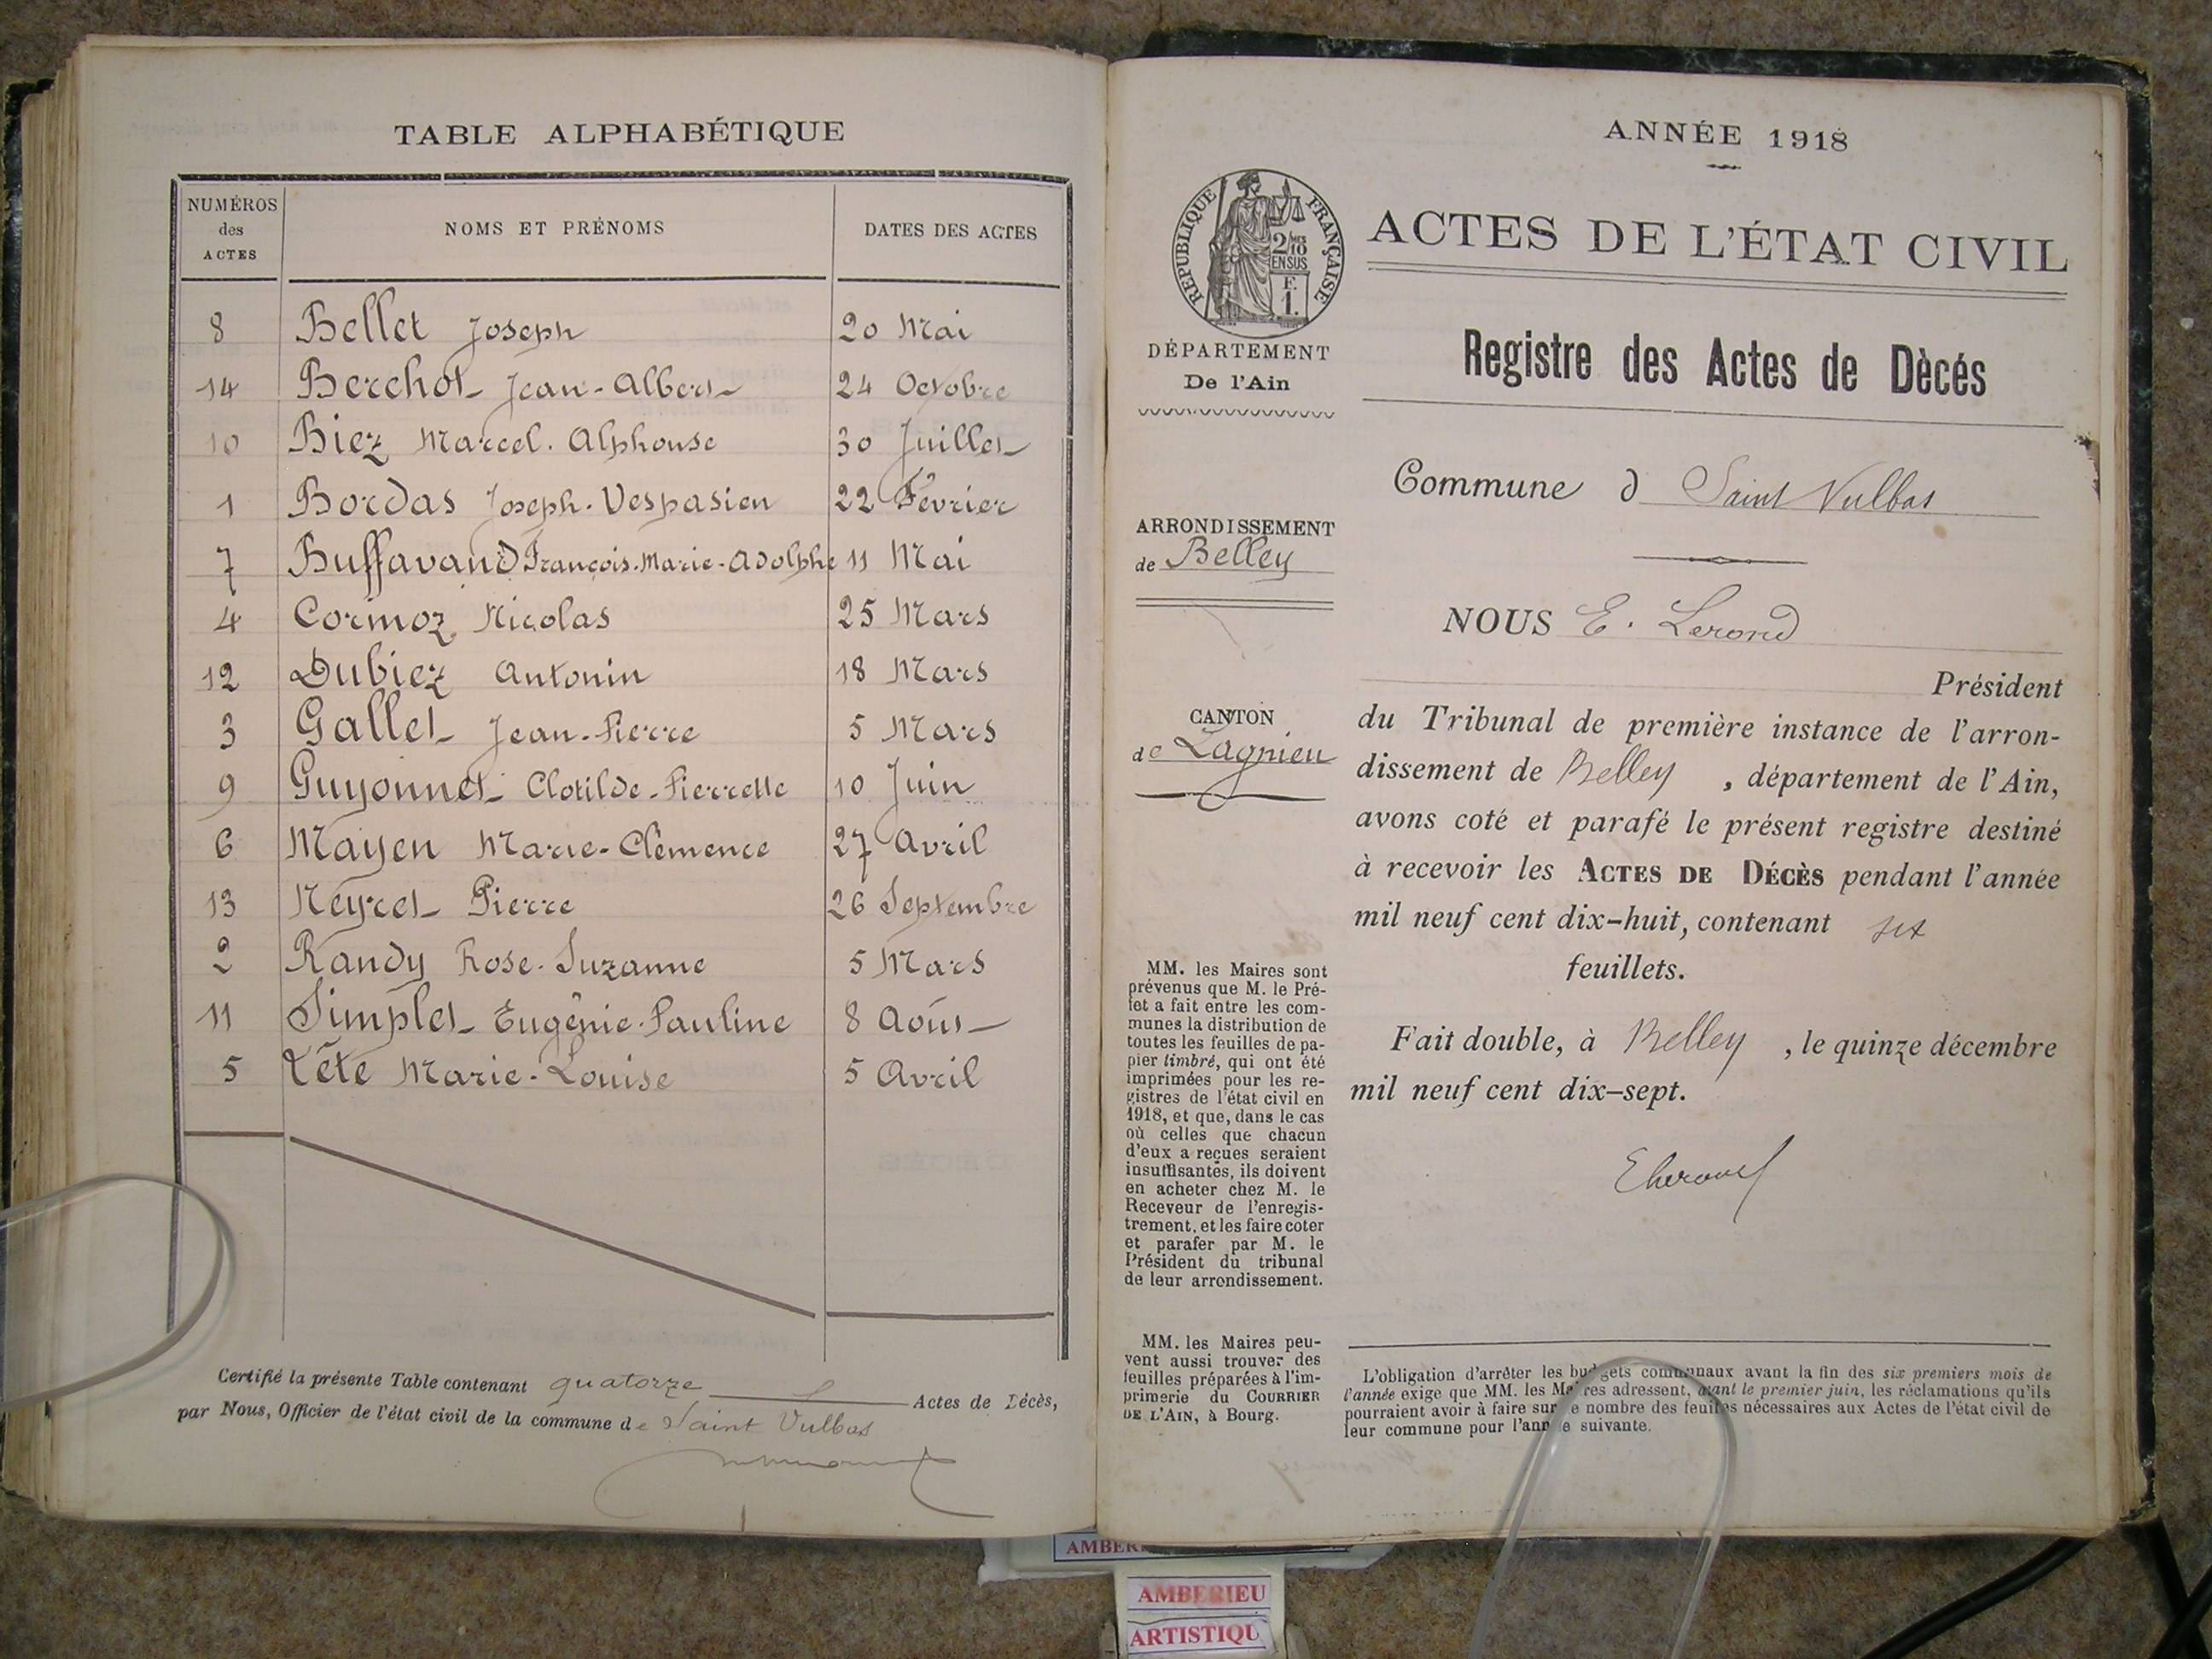 TABLE ALPHABÉTIQUE
NUMÉROS des ACTES NOMS ET PRÉNOMS DATES DES ACTES
8 Bellet Joseph 20 Mai
14 Berchot Jean-Albert 24 Octobre
10 Biez Marcel. Alphonse 30 Juillet
1 Bordas Joseph. Vespasien 22 Février
7 Buffavand François-Marie-Adolphe 11 Mai
4 Cormoz Nicolas 25 Mars
12 Dubiez Antonin 18 Mars
3 Gallet Jean-Pierre 5 Mars
9 Guyonnet Clotilde-Pierrette 10 Juin
6 Mayen Marie-Clémence 27 Avril
13 Neyret Pierre 26 Septembre
2 Randy Rose-Suzanne 5 Mars
11 Simplet Eugénie-Pauline 8 Août
5 Tête Marie-Louise 5 Avril
Certifié la présente Table contenant quatorze Actes de Décès,
par Nous, Officier de l'état civil de la commune de Saint Vulbas
ANNÉE 1918
RÉPUBLIQUE FRANÇAISE
2/10
EN SUS
F.
1.
ACTES DE L'ÉTAT CIVIL
DÉPARTEMENT
De l'Ain
Registre des Actes de Dècés
Commune d Saint Vulbas
ARRONDISSEMENT
de Belley
NOUS E. Lerond
Président
CANTON
de Lagnieu
du Tribunal de première instance de l'arron-
dissement de Belley , département de l'Ain,
avons coté et parafé le présent registre destiné
à recevoir les ACTES DE DÉCÈS pendant l'année
mil neuf cent dix-huit, contenant six
feuillets.
Fait double, à Belley , le quinze décembre
mil neuf cent dix-sept.
MM. les Maires sont
prévenus que M. le Pré-
fet a fait entre les com-
munes la distribution de
toutes les feuilles de pa-
pier timbré, qui ont été
imprimées pour les re-
gistres de l'état civil en
1918, et que, dans le cas
où celles que chacun
d'eux a reçues seraient
insuffisantes, ils doivent
en acheter chez M. le
Receveur de l'enregis-
trement, et les faire coter
et parafer par M. le
Président du tribunal
de leur arrondissement.
MM. les Maires peu-
vent aussi trouver des
feuilles préparées à l'im-
primerie du COURRIER
DE L'AIN, à Bourg.
L'obligation d'arrêter les budgets communaux avant la fin des six premiers mois de
l'année exige que MM. les Maires adressent, avant le premier juin, les réclamations qu'ils
pourraient avoir à faire sur le nombre des feuilles nécessaires aux Actes de l'état civil de
leur commune pour l'année suivante.
AMBERIEU
ARTISTIQU